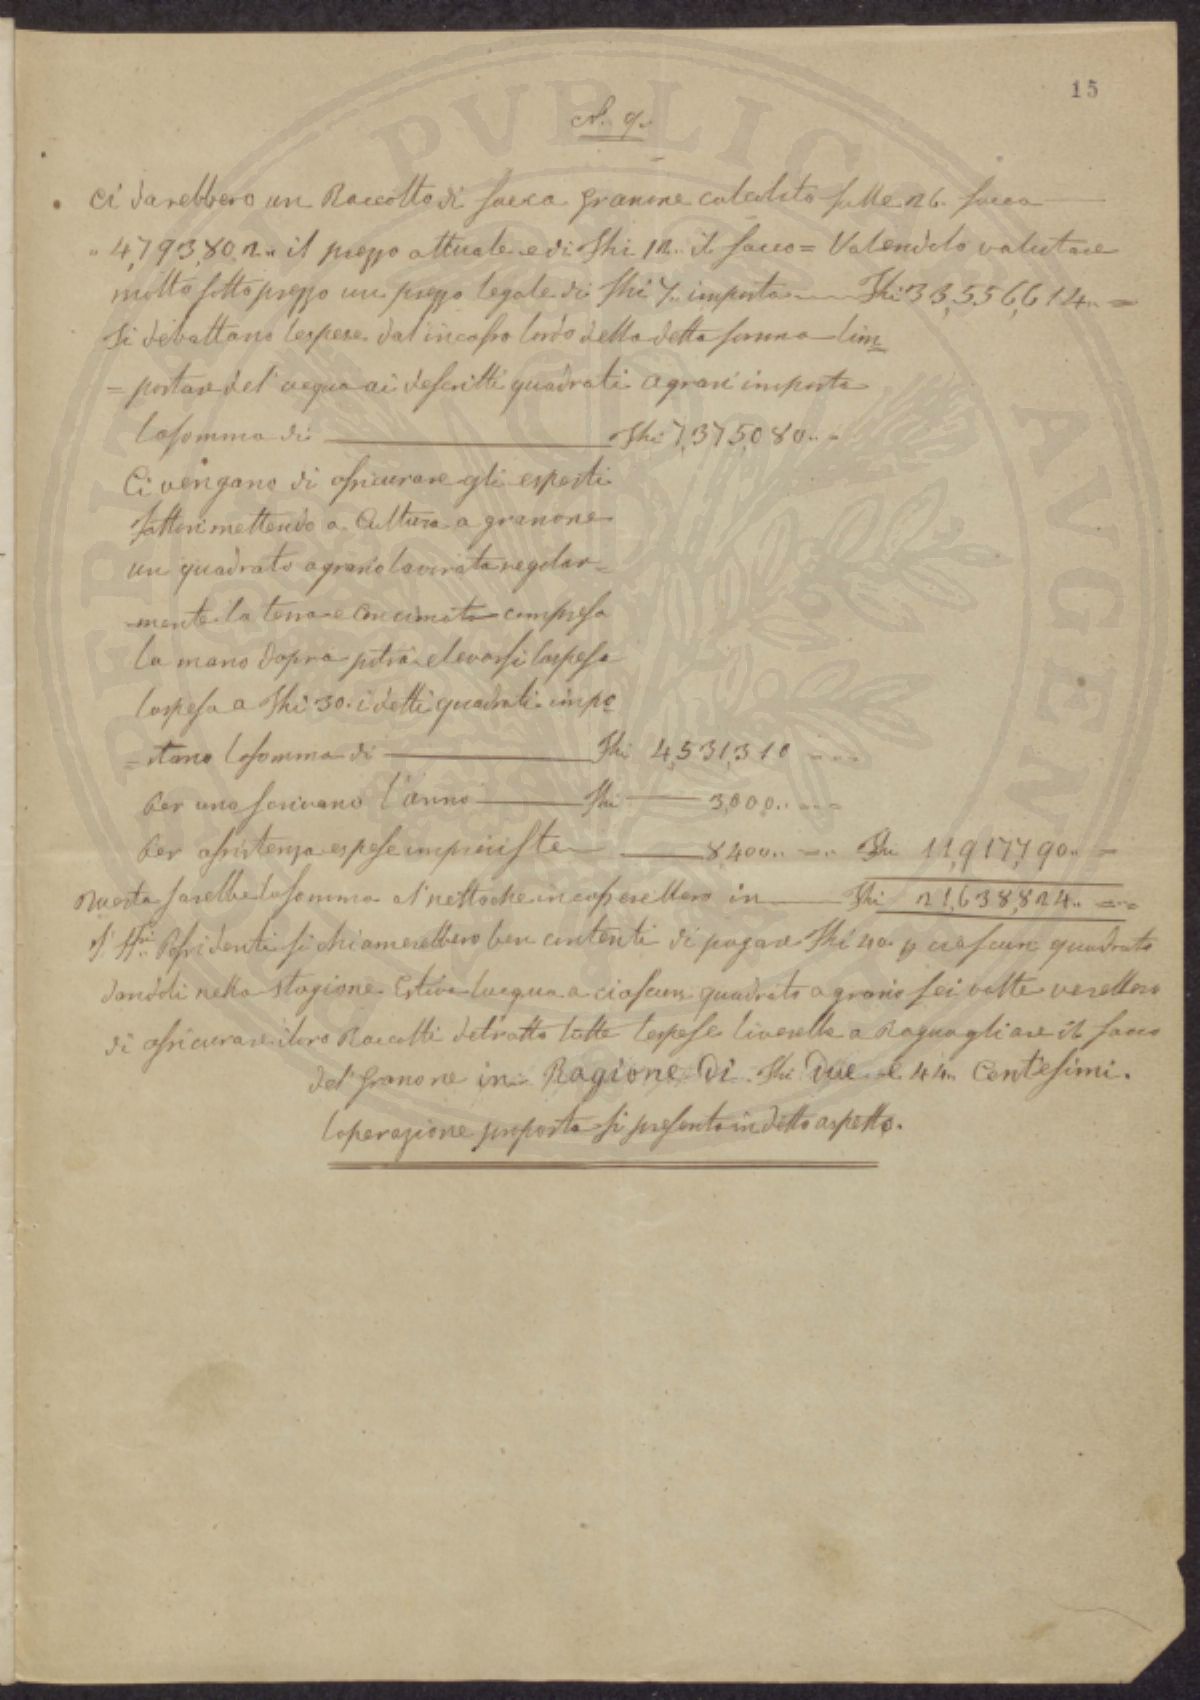 15
N. 9.
Ci darebbero un Raccolto di sacca granone calcolato sulle 26. sacca
" 4,793,802.. il prezzo attuale e di Shi 12.. il sacco = Valendolo valutare
molto sotto prezzo un prezzo legale di Shi 7.. importa Shi 33,556,614.. =
Si debattano lespese dal incasso lordo della detta somma lim
= portare del' acqua ai descritti quadrati agrari importa
lasomma di Shi 7,375,080.. =
Ci vengano di assicurare gli esperti
fattori mettendo a Cultura a granone
un quadrato agrario lavorata regolar=
=mente la terra e Concimata compresa
la mano dopra potrà elevarsi laspesa
laspesa a Shi 30. i detti quadrati impo
=rtano lasomma di Shi 4,531,310
Per uno scrivano l'anno Shi 3,000..
Per assistenza espese impreviste 8,400.. = Shi 11,917,790.. =
Questa sarebbe lasomma al netto che incasserebbero in Shi 21,638,824.. =
I Sri. Possidenti si chiamerebbero ben contenti di pagare Shi 40. p ciascun quadrato
dandoli nella stagione Estiva lacqua a ciascun quadrato agrario sei volte verebbero
di assicurare iloro Raccolti detratto tutte lespese liverebbe a Raguagliare il sacco
del' Granone in Ragione Di Shi Due e 44.. Centesimi.
loperazione proposta si presenta in detto aspetto.
PVBLIC
AVGEN